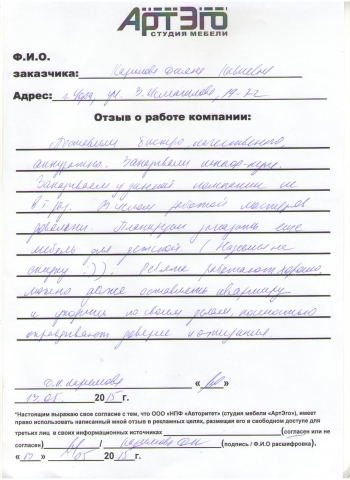 АртЭго
СТУДИЯ МЕБЕЛИ
Ф.И.О.
заказчика: Каримова
Адрес: г. Уфа, ул. З. Исмагилова,
Отзыв о работе компании:
быстро, качественно,
аккуратно. Заказывали шкаф-купе.
Заказываем у данной компании не
в I раз. В целом работой мастеров
довольны. Планируем заказать еще
мебель для детской (Надеюсь на
скидку :)). Ребята работают хорошо,
можно даже оставлять квартиру
и уходить по своим делам, полностью
оправдывают доверие и ожидания.
Каримова « »
13.05. 2015 г.
*Настоящим выражаю свое согласие с тем, что ООО «НПФ «Авторитет» (студия мебели «АртЭго»), имеет
право использовать написанный мной отзыв в рекламных целях, размещая его в свободном доступе для
третьих лиц в своих информационных источниках (согласен или не
согласен) / Каримова (подпись / Ф.И.О расшифровка).
«13» 05 2015 г.